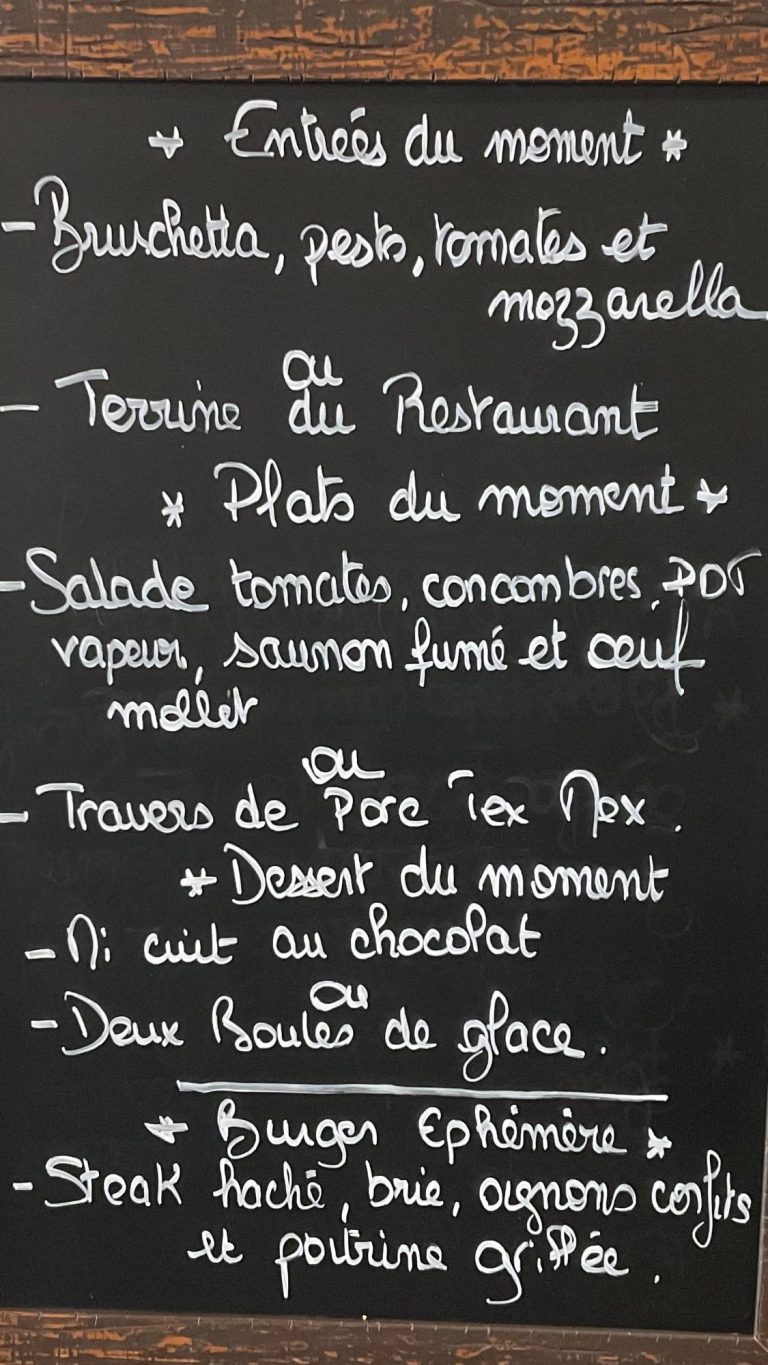 * Entrées du moment *
- Bruschetta, pesto, tomates et
mozzarella
ou
- Terrine du Restaurant
* Plats du moment *
- Salade tomates, concombres, PDT
vapeur, saumon fumé et œuf
mollet
ou
- Travers de Porc Tex Mex.
* Dessert du moment
- Mi cuit au chocolat
ou
- Deux Boules de glace.
* Burger Ephémère *
- Steak haché, brie, oignons confits
et poitrine grillée.